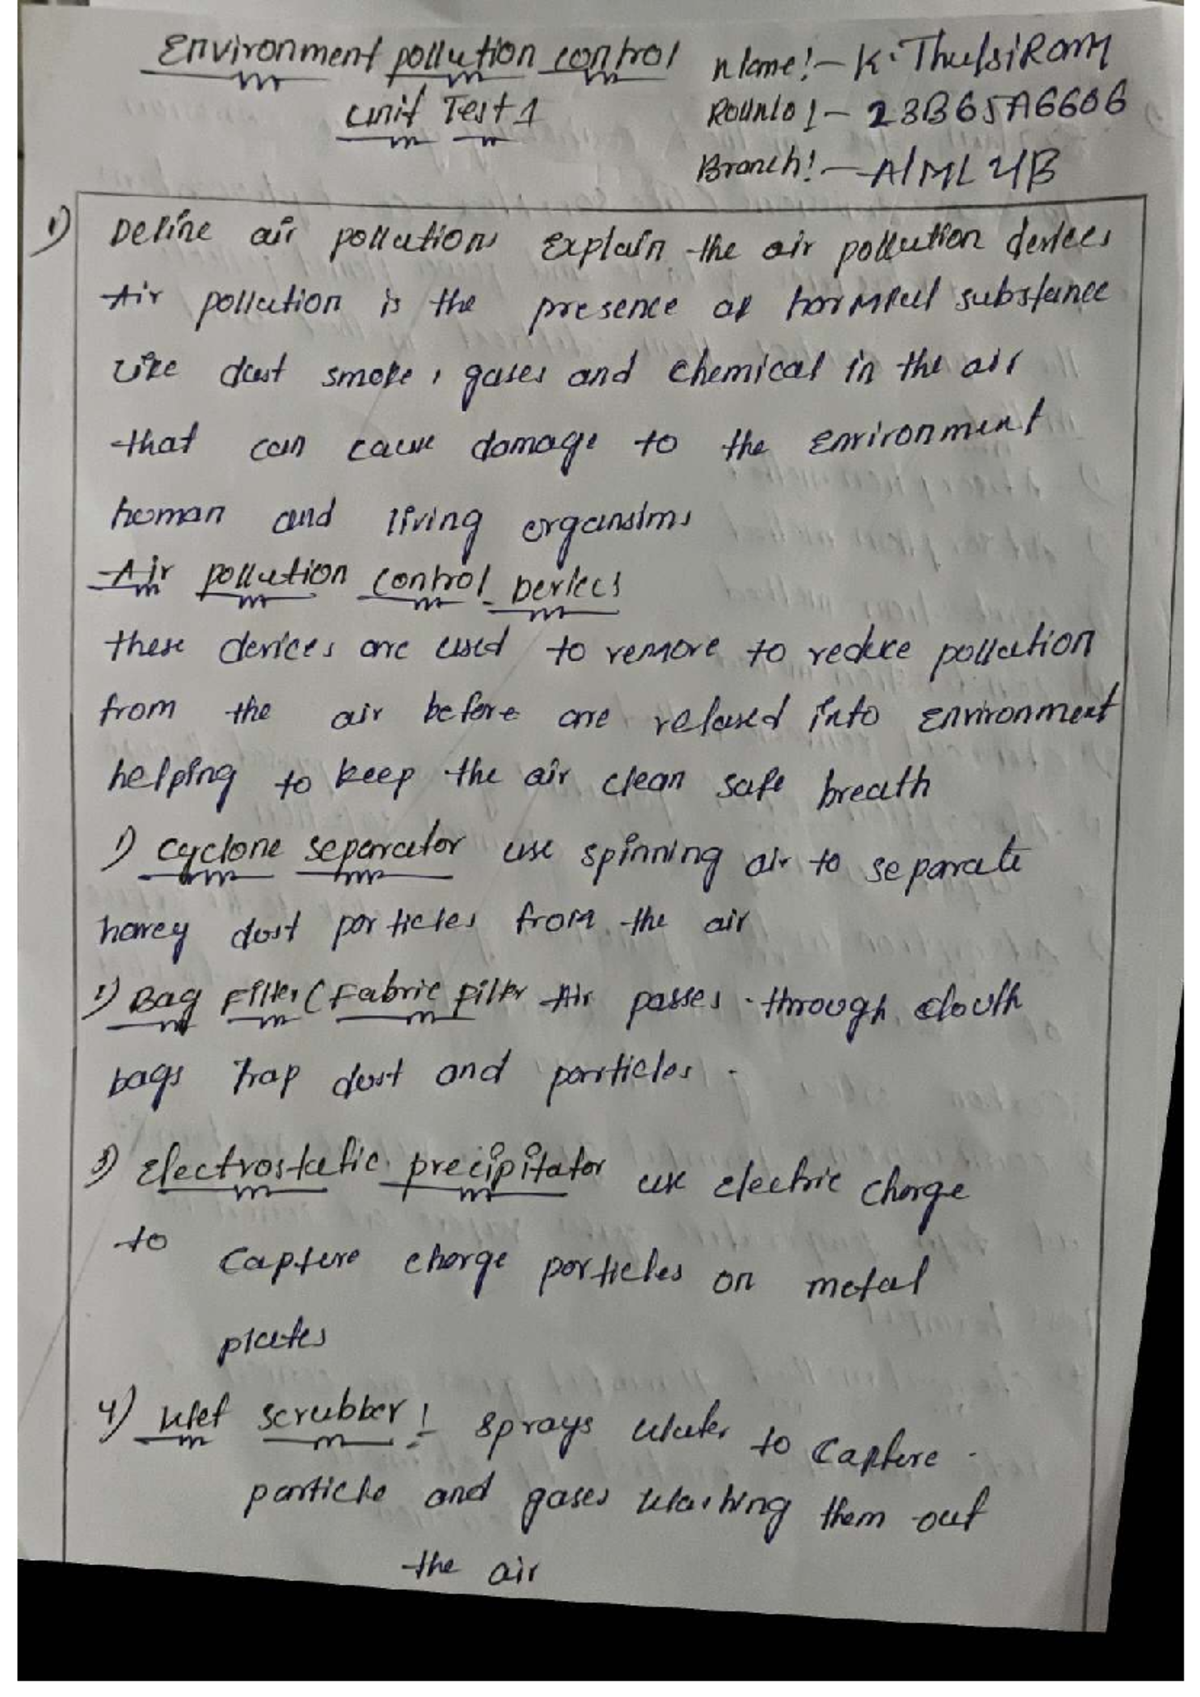 Environment pollution control
Name:- K. ThulsiRam
Unit Test 1
RollNo :- 23B65A6606
Branch:- AIML 4/B
1) Define air pollutions Explain the air pollution devices
Air pollution is the presence of harmful substance
like dust smoke, gases and chemical in the air
that can cause damage to the environment
human and living organsims
Air pollution control Devices
these devices are used to remove to reduce pollution
from the air before are relased into environment
helping to keep the air clean safe breath
1) Cyclone separator use spinning air to separate
havey dust particles from the air
2) Bag Filter (Fabric Filter Air passes through clouth
bags Trap dust and particles.
3) Electrostatic precipitator use electric charge
to capture charge particles on metal
plates
4) Wet scrubber:- sprays water to capture
particle and gases washing them out
the air